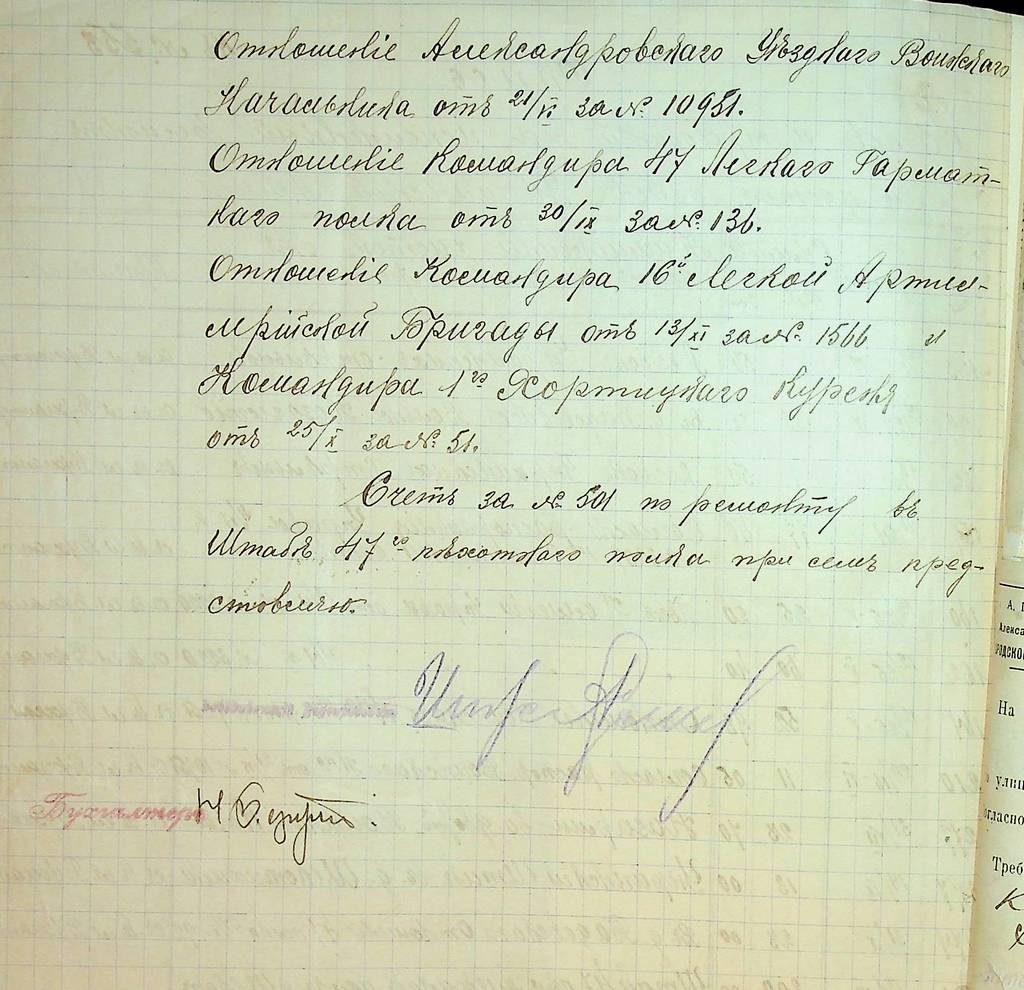 Отношеніе Александровскаго Уѣзднаго Воинскаго
Начальника отъ 21/VI за № 10951.
Отношеніе Командира 47 Легкаго Гармат-
наго полка отъ 30/IX за № 136.
Отношеніе Командира 16й Легкой Артил-
лерійской Бригады отъ 13/XI за №. 1566 и
Командира 1го Хортицкаго Куреня
отъ 25/X за №. 51.
Счетъ за №. 501 по ремонту въ
Штабѣ 47го пѣхотнаго полка при семъ пред-
ставляю.
Бухгалтеръ
А. Г
Алекса
РОДСКО
На
улиц
огласно
Треб